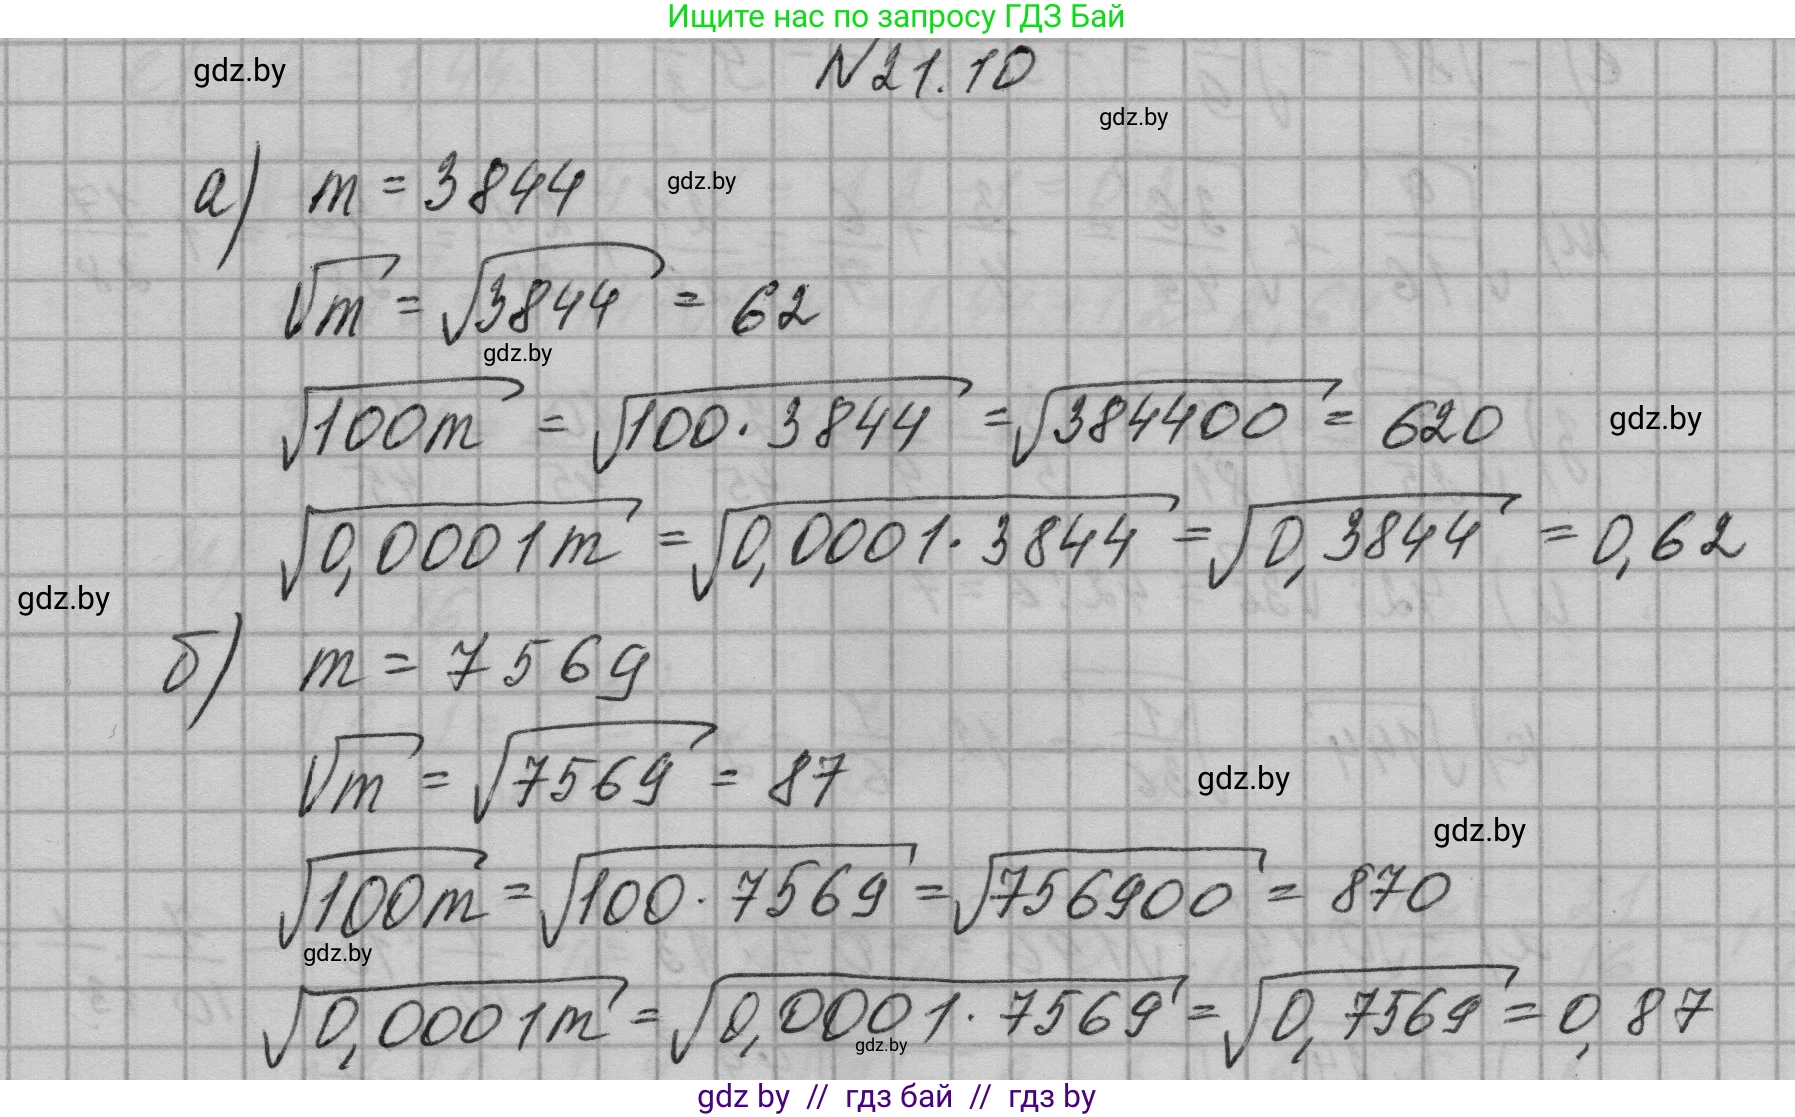 Ищите нас по запросу ГДЗ Бай
gdz.by
N 21.10
gdz.by
а) m = 3844
gdz.by
√m = √3844 = 62
gdz.by
√100m = √100·3844 = √384400 = 620
gdz.by
√0,0001m = √0,0001·3844 = √0,3844 = 0,62
gdz.by
б) m = 7569
√m = √7569 = 87
gdz.by
gdz.by
√100m = √100·7569 = √756900 = 870
gdz.by
√0,0001m = √0,0001·7569 = √0,7569 = 0,87
gdz.by
gdz by // гдз бай // гдз by